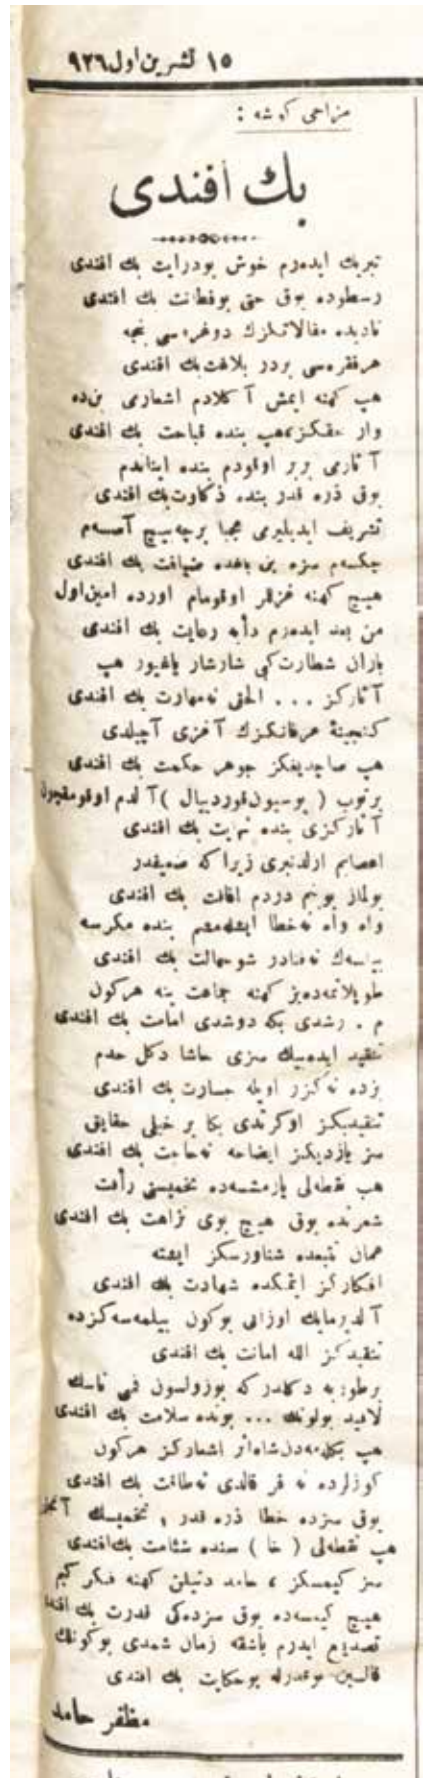 ١٥ تشرين اول ٩٢٦
مزاحى كوشه :
بك افندى
تبريك ايده‌رم خوش بودرايت بك افندى
رسطوده يوق حتى بوفطانت بك افندى
ناديده مقالاتكزك دوغروسى نجه
هرفقره‌سى بردر بلاغت بك افندى
هپ كهنه ايمش آكلادم اشعارى بن‌ده
وار حقكز هپ بنده قباحت بك افندى
آثارى برر اوقودم بنده اينانديم
يوق ذره قدر بنده ذكاوت بك افندى
تشريف ايديليرى عجبا برچه‌سيچ آمسه‌م
چكسه‌م سزه بن باغده ضيافت بك افندى
هيچ كهنه غزللر اوقومام اورده امين اول
من بعد ايده‌رم دأبه رعايت بك افندى
باران شطارت كبى شارشار ياغيور هپ
آثاركز ... الحق نه‌مهارت بك افندى
كنجينۀ عرفانكزك آغزى آچيلدى
هپ صاچديغكز جوهر حكمت بك افندى
برتوب ( بوسيون قورديال ) آلدم اوقومقچون
آثاركزى بنده نهايت بك افندى
اعصابم ازلدنبرى زيرا كه ضعيفدر
بولماز بونم دردم افاقت بك افندى
واه واه نه‌خطا ايشله‌مشم بنده مكرسه
بيلسه‌ك نه‌فنادر شوجهالت بك افندى
طوپلاتمه‌ده‌يز كهنه جماعت ينه هركون
م . رشدى بكه دوشدى امامت بك افندى
تنقيد ايده‌بيلك سزى حاشا دكل حدم
بزده نه‌كزر اويله جسارت بك افندى
تنقيديكز اوكرتدى بكا بر خيلى حقايق
سز يازديكز ايضاحه نه‌حاجت بك افندى
هپ نقطه‌لى يازمشسه‌ده تخميسنى رأفت
شعرنده يوق هيچ بوى نزاهت بك افندى
عمان تتبعده شناورسكز ايشته
افكاركز ايتمكده شهادت بك افندى
آلديرمايك اوزانى بوكون بيلمه‌سه‌كزده
تنقيدكز الله امانت بك افندى
برطوربه دكلدر كه بوزولسون فمى ناسك
لاقيد بولونك ... بونده سلامت بك افندى
هپ بكله‌مه‌دن شاه‌اثر اشعاركز هركون
كوزلرده نه فر قالدى نه‌طاقت بك افندى
يوق سزده خطا ذره قدر ، تخميسك آنجاق
هپ نقطه‌لى ( خا ) سنده شئامت بك افندى
سز كيمسكز ، حامد دنيلن كهنه فكر كيم
هيچ كيمسه‌ده يوق سزده‌كى قدرت بك افندى
تصديع ايدرم باشقه زمان شمدى بوكونلك
قالسين بوقدرله بوحكايت بك افندى
مظفر حامد